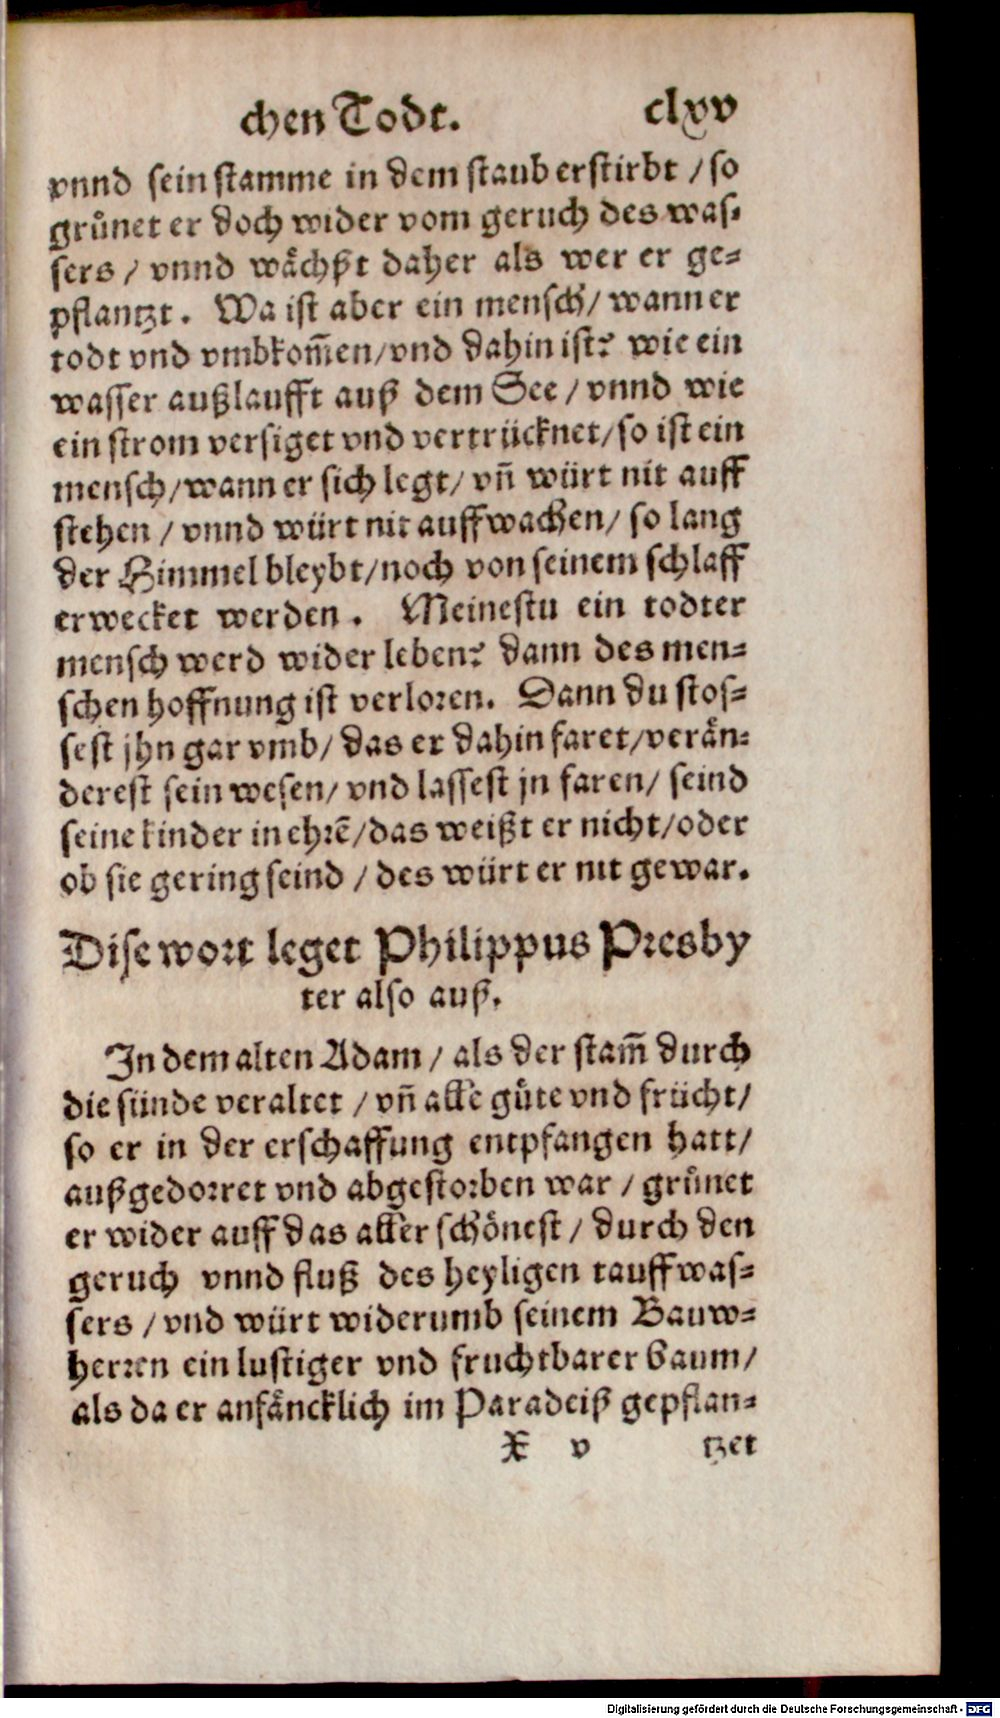 chen Todt. clxv
vnnd sein stamme in dem staub erstirbt / so
gruͤnet er doch wider vom geruch des was⸗
sers / vnnd waͤchßt daher als wer er ge⸗
pflantzt. Wa ist aber ein mensch / wann er
todt vnd vmbkom̃en / vnd dahin ist? wie ein
wasser außlaufft auß dem See / vnnd wie
ein strom versiget vnd vertrücknet / so ist ein
mensch / wann er sich legt / vñ würt nit auff
stehen / vnnd würt nit auffwachen / so lang
der Himmel bleybt / noch von seinem schlaff
erwecket werden. Meinestu ein todter
mensch werd wider leben? dann des men⸗
schen hoffnung ist verloren. Dann du stos⸗
sest jhn gar vmb / das er dahin faret / veraͤn⸗
derest sein wesen / vnd lassest jn faren / seind
seine kinder in ehrẽ / das weißt er nicht / oder
ob sie gering seind / des würt er nit gewar.
Dise wort leget Philippus Presby
ter also auß.
In dem alten Adam / als der stam̃ durch
die sünde veraltet / vñ alle guͤte vnd frücht /
so er in der erschaffung entpfangen hatt /
außgedorret vnd abgestorben war / gruͤnet
er wider auff das aller schoͤnest / durch den
geruch vnnd fluß des heyligen tauffwas⸗
sers / vnd würt widerumb seinem Bauw⸗
herren ein lustiger vnd fruchtbarer baum /
als da er anfaͤncklich im Paradeiß gepflan⸗
X v tzet
Digitalisierung gefördert durch die Deutsche Forschungsgemeinschaft - DFG